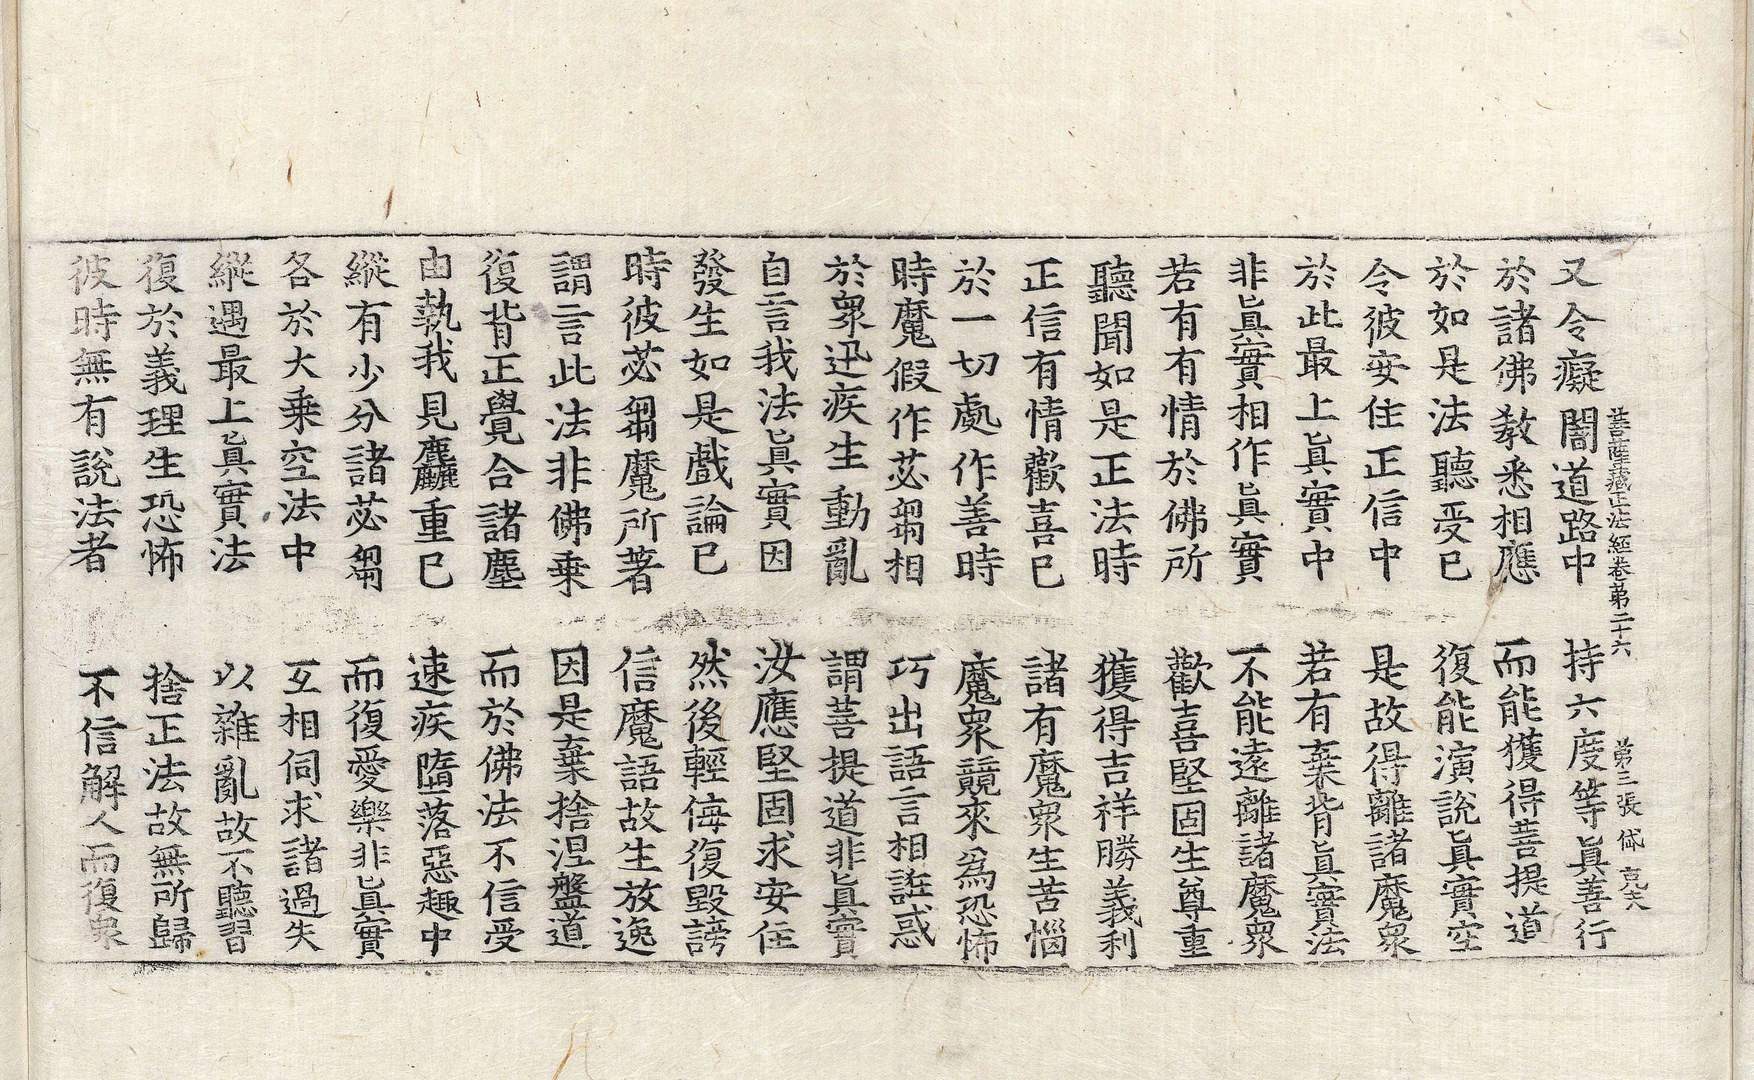 又令癡闇道路中　持六度等眞善行
菩薩藏正法經卷第二十六　第三張　伱
於諸佛敎悉相應　而能獲得菩提道
於如是法聽受已　復能演說眞實空
令彼安住正信中　是故得離諸魔衆
於此最上眞實中　若有棄背眞實法
非眞實相作眞實　不能遠離諸魔衆
若有有情於佛所　歡喜堅固生尊重
聽聞如是正法時　獲得吉祥勝義利
正信有情歡喜已　諸有魔衆生苦惱
於一切處作善時　魔衆競來爲恐怖
時魔假作苾芻相　巧出語言相誑惑
於衆迅疾生動亂　謂菩提道非眞實
自言我法眞實因　汝應堅固求安住
發生如是戲論已　然後輕侮復毀謗
時彼苾芻魔所著　信魔語故生放逸
謂言此法非佛乗　因是棄捨涅盤道
復背正覺合諸塵　而於佛法不信受
由執我見麤重已　速疾墮落惡趣中
縱有少分諸苾芻　而復愛樂非眞實
各於大乗空法中　互相伺求諸過失
縱遇最上眞實法　以雜亂故不聽習
復於義理生恐怖　捨正法故無所歸
彼時無有說法者　不信解人而復衆